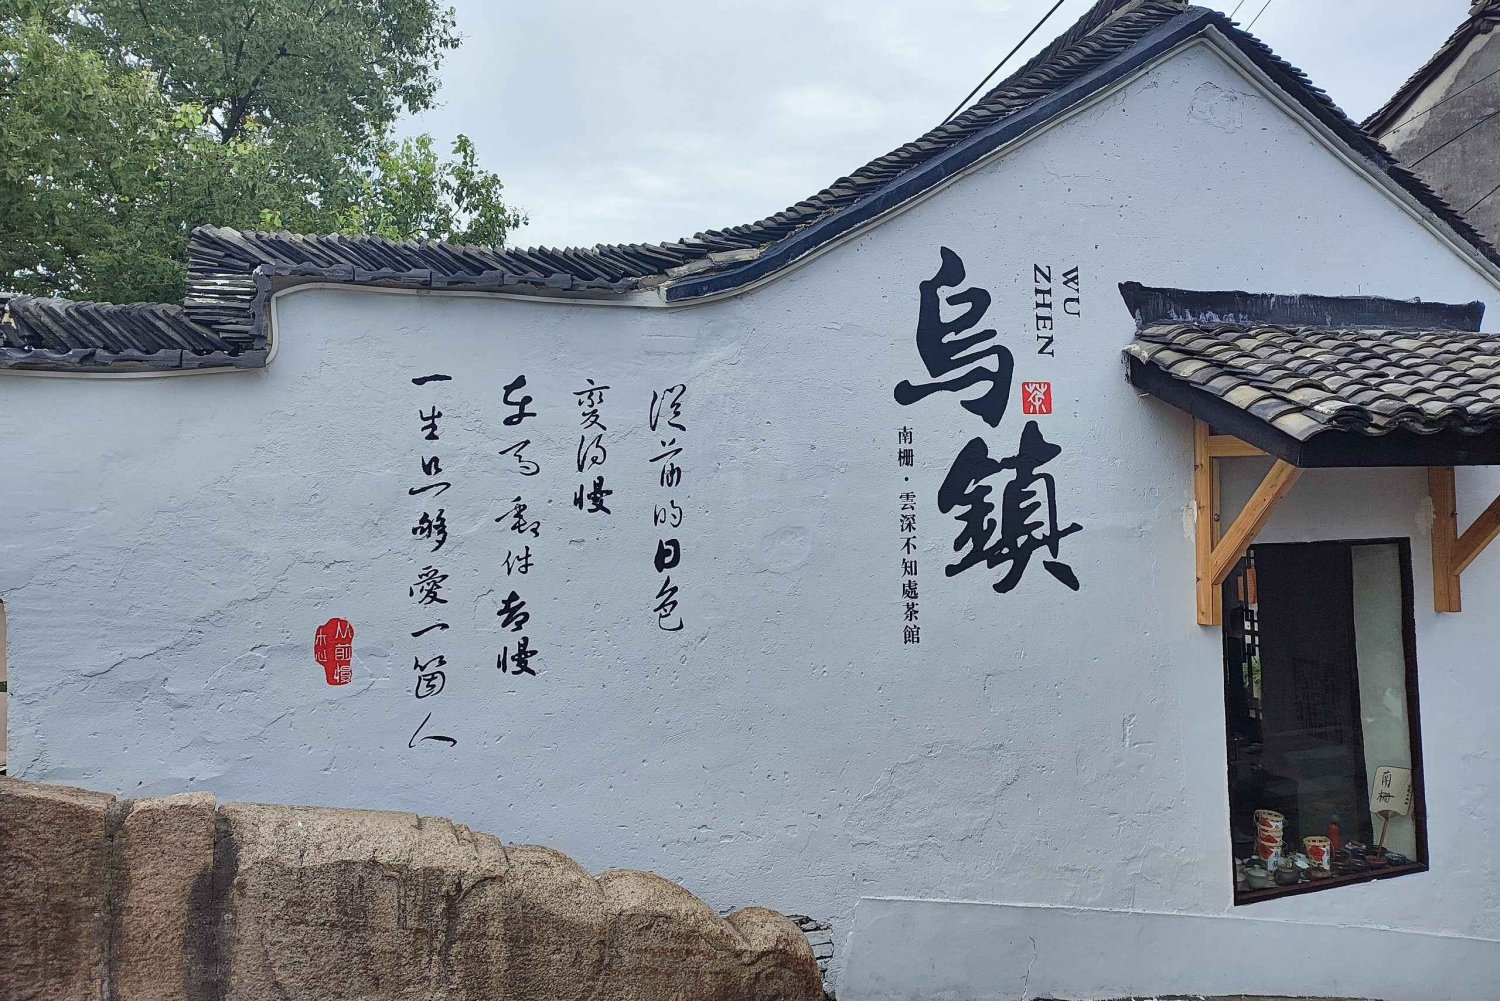 WU
ZHEN
烏鎮
茶
南栅·雲深不知處茶館
從前的日色
變得慢
车馬郵件都慢
一生只够愛一箇人
从前慢
木心
南栅